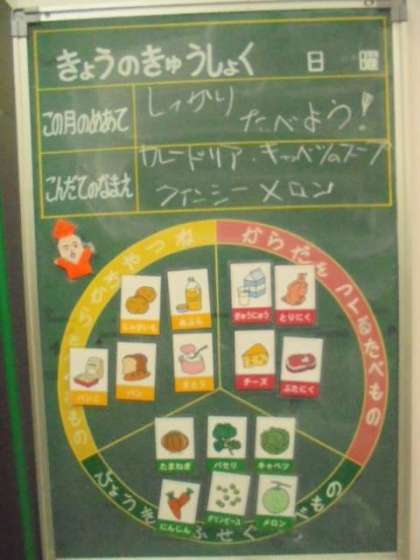 きょうのきゅうしょく 日 曜
この月のめあて
しっかり
たべよう!
こんだてのなまえ
カレードリア・キャベツのスープ
クインシーメロン
からだをつくるたべもの
じゃがいも
あぶら
ぎゅうにゅう
とりにく
パンこ
パン
さとう
チーズ
ぶたにく
たまねぎ
パセリ
キャベツ
にんじん
グリンピース
メロン